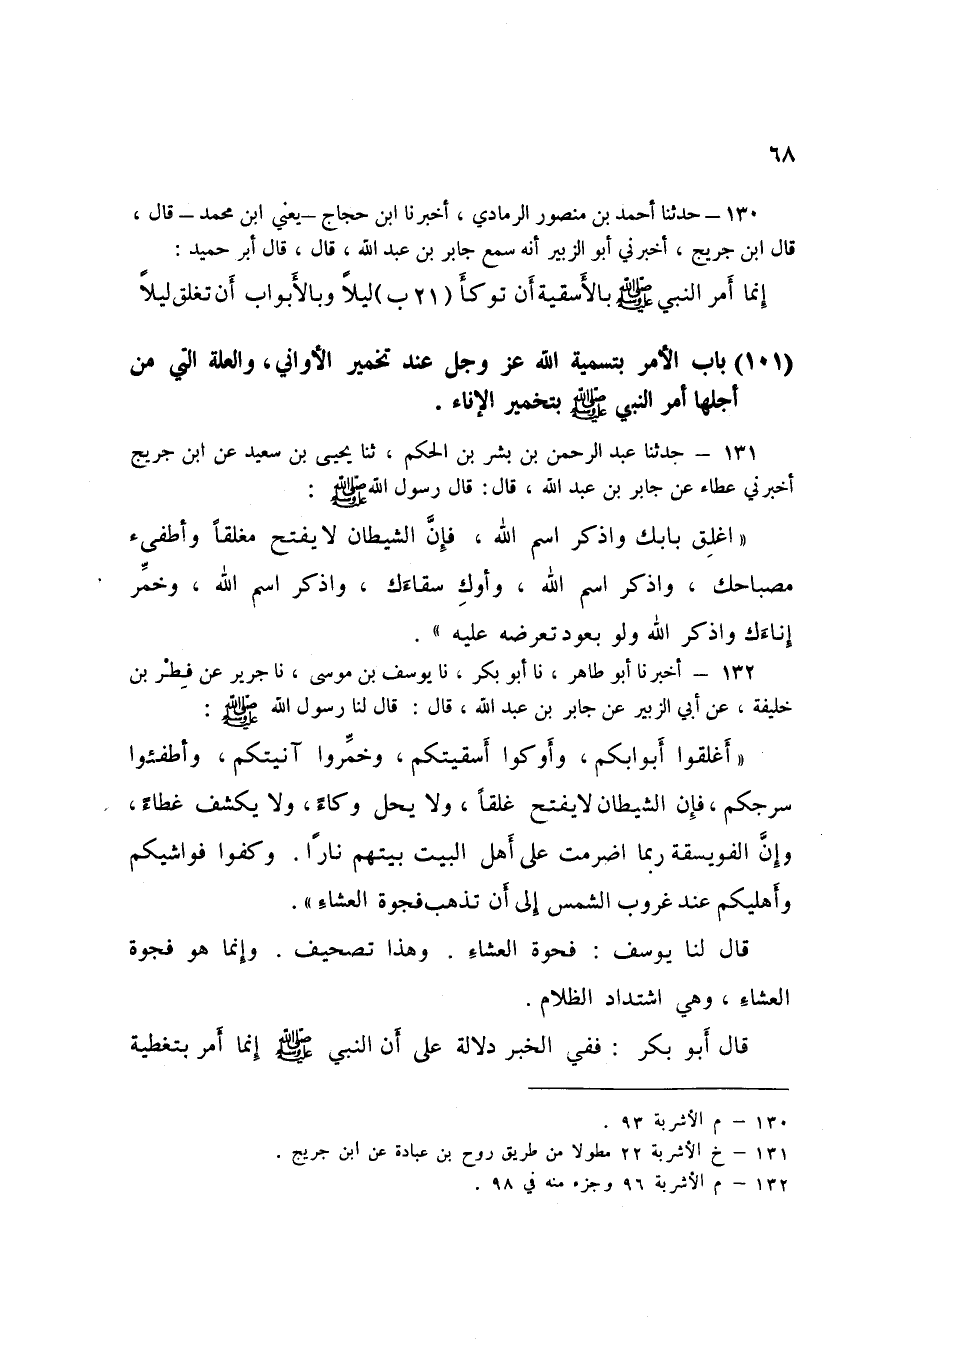 ٦٨
١٣٠ – حدثنا أحمد بن منصور الرمادي ، أخبرنا ابن حجاج –يعني ابن محمد – قال ،
قال ابن جريج ، أخبرني أبو الزبير أنه سمع جابر بن عبد الله ، قال ، قال أبر حميد :
إنما أَمر النبي ﷺ بالأَسقية أَن توكأَ (٢١ ب) ليلاً وبالأَبواب أَن تغلق ليلاً
(١٠١) باب الأمر بتسمية الله عز وجل عند تخمير الأواني، والعلة التي من
أجلها أمر النبي ﷺ بتخمير الإناء .
١٣١ – حدثنا عبد الرحمن بن بشر بن الحكم ، ثنا يحيى بن سعيد عن ابن جريج
أخبرني عطاء عن جابر بن عبد الله ، قال: قال رسول الله ﷺ :
« اغلِق بابك واذكر اسم الله ، فإِنَّ الشيطان لا يفتح مغلقاً وأَطفيء
مصباحك ، واذكر اسم الله ، وأَوكِ سقاءَك ، واذكر اسم الله ، وخمِّر
إِناءَك واذكر الله ولو بعود تعرضه عليه » .
١٣٢ – أخبرنا أبو طاهر ، نا أبو بكر ، نا يوسف بن موسى ، نا جرير عن فِطْر بن
خليفة ، عن أبي الزبير عن جابر بن عبد الله ، قال : قال لنا رسول الله ﷺ :
« أَغلقوا أَبوابكم ، وأَوكوا أَسقيتكم ، وخمِّروا آنيتكم ، وأَطفئوا
سرجكم ، فإن الشيطان لا يفتح غلقاً ، ولا يحل وكاءً ، ولا يكشف غطاءً ،
وإِنَّ الفويسقة ربما اضرمت على أَهل البيت بيتهم ناراً . وكفوا فواشيكم
وأَهليكم عند غروب الشمس إِلى أَن تذهب فجوة العشاءِ » .
قال لنا يوسف : فحوة العشاءِ . وهذا تصحيف . وإنما هو فجوة
العشاءِ ، وهي اشتداد الظلام .
قال أَبو بكر : ففي الخبر دلالة على أَن النبي ﷺ إِنما أَمر بتغطية
١٣٠ – م الأشربة ٩٣ .
١٣١ – خ الأشربة ٢٢ مطولا من طريق روح بن عبادة عن ابن جريج .
١٣٢ – م الأشربة ٩٦ وجزء منه في ٩٨ .